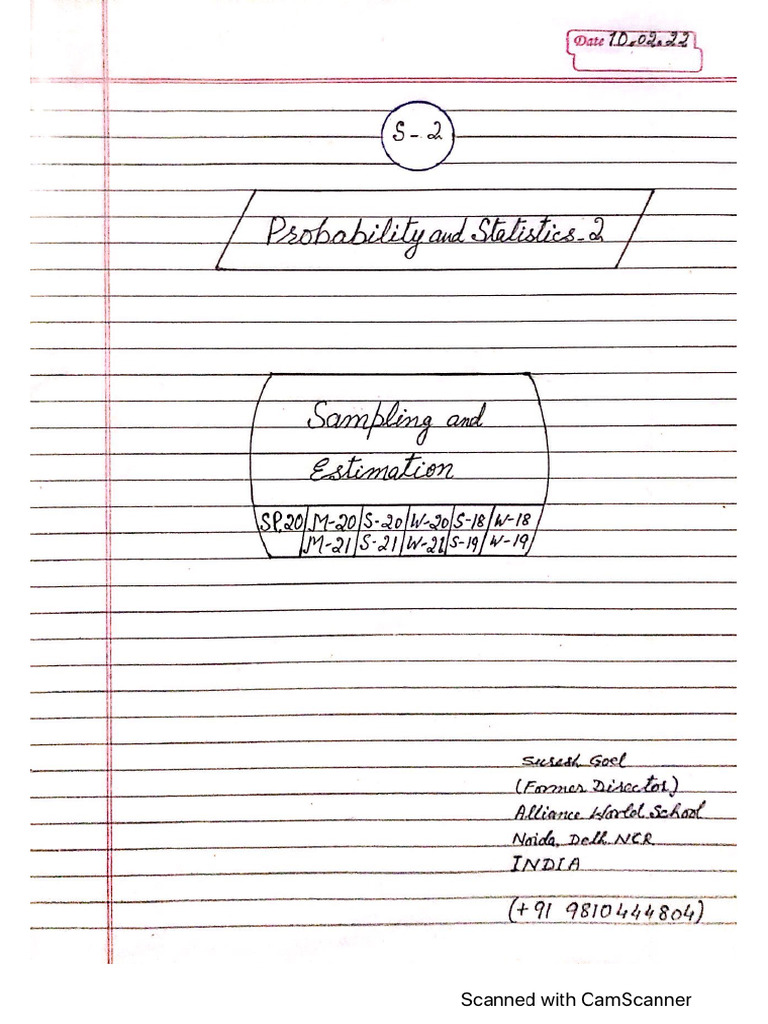 Date 10.02.22
S-2
Probability and Statistics-2
Sampling and
Estimation
SP.20 M-20 S-20 W-20 S-18 W-18
M-21 S-21 W-21 S-19 W-19
Suresh Goel
(Former Director)
Alliance World School
Noida, Delhi NCR
INDIA
(+91 9810444804)
Scanned with CamScanner